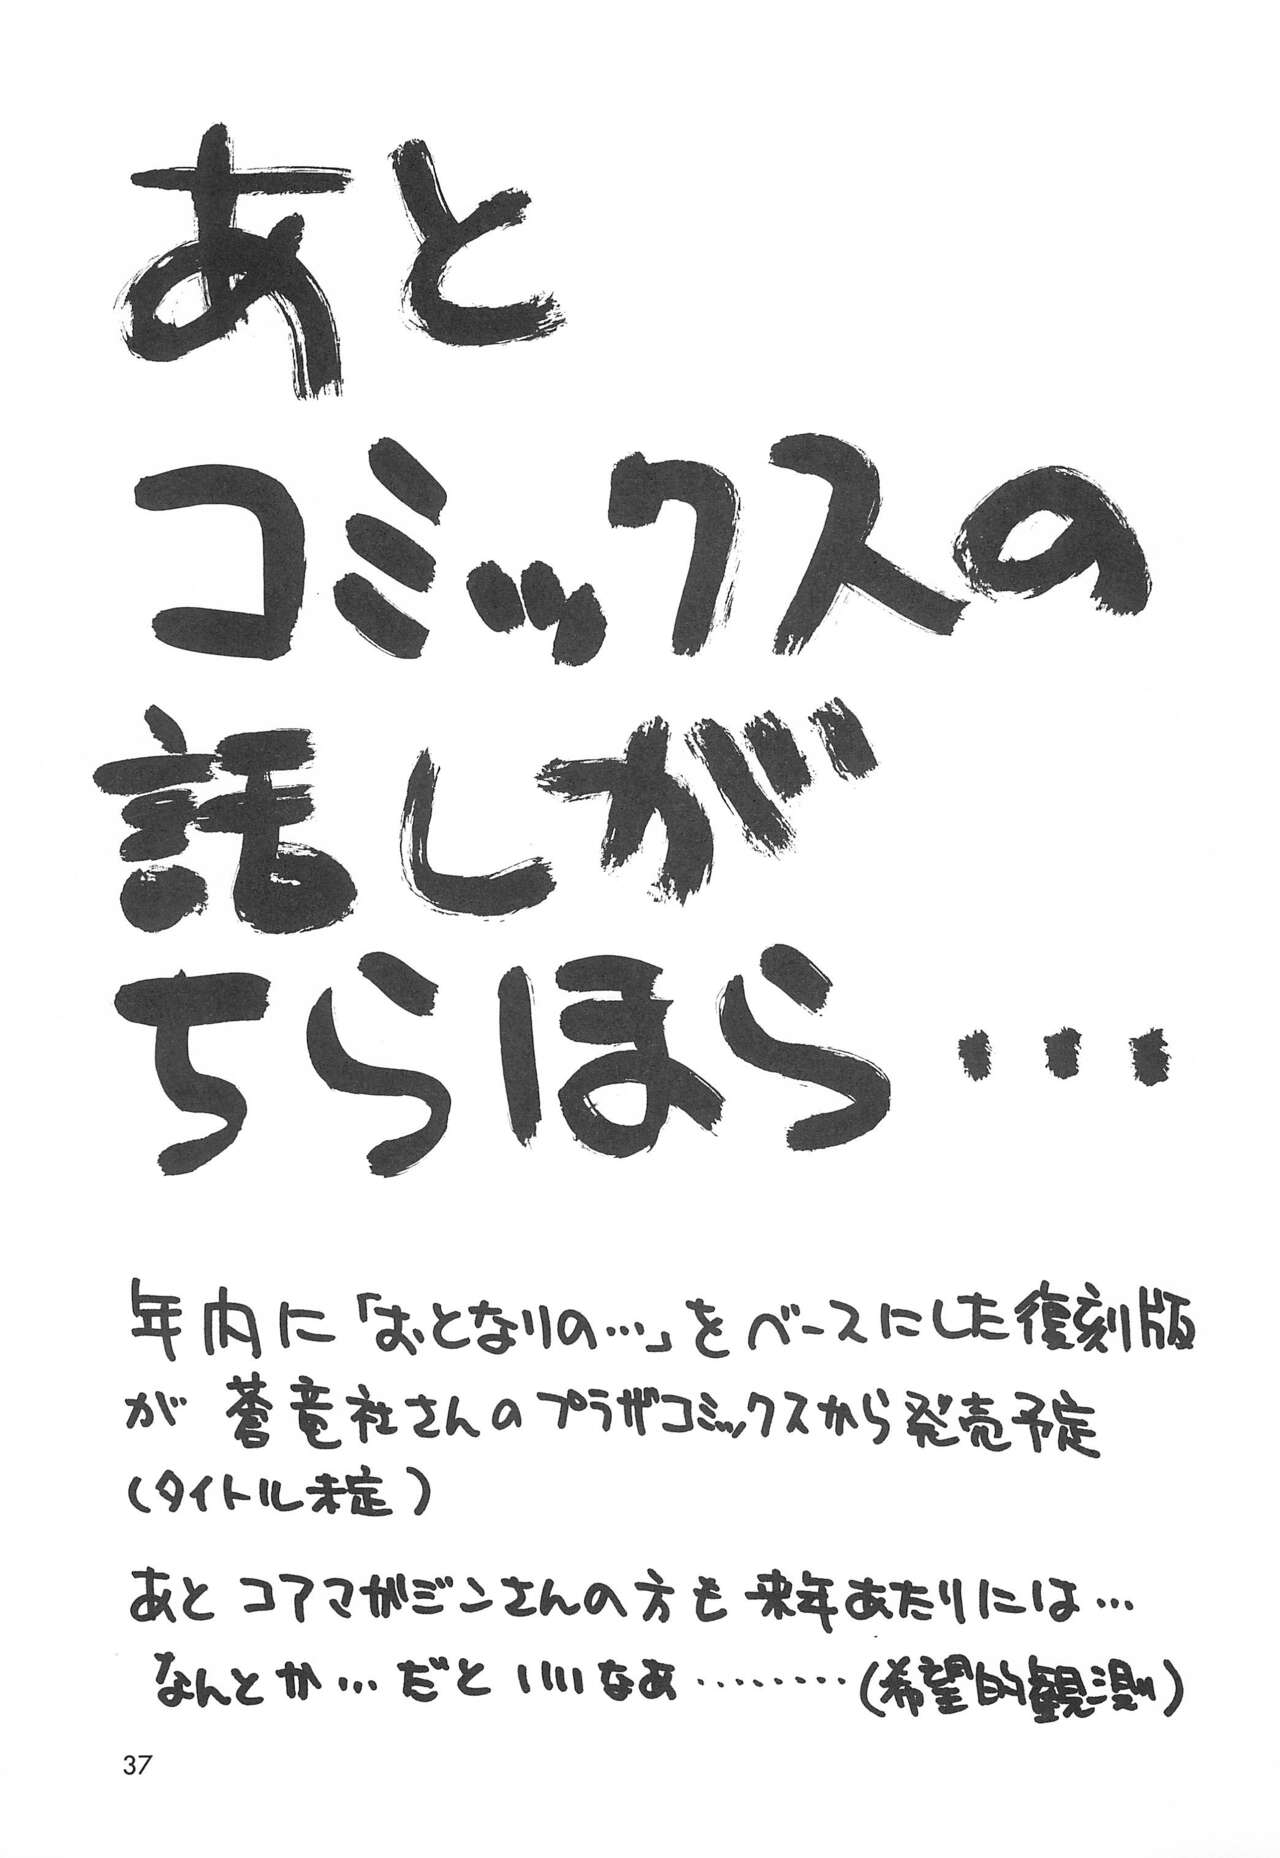 あと
コミックスの
話しが
ちらほら・・・
年内に「おとなりの・・・」をベースにした復刻版
が 蒼竜社さんのプラザコミックスから発売予定
(タイトル未定)
あと コアマガジンさんの方も 来年あたりには・・・
なんとか・・・だと いいなあ・・・・・・・・(希望的観測)
37